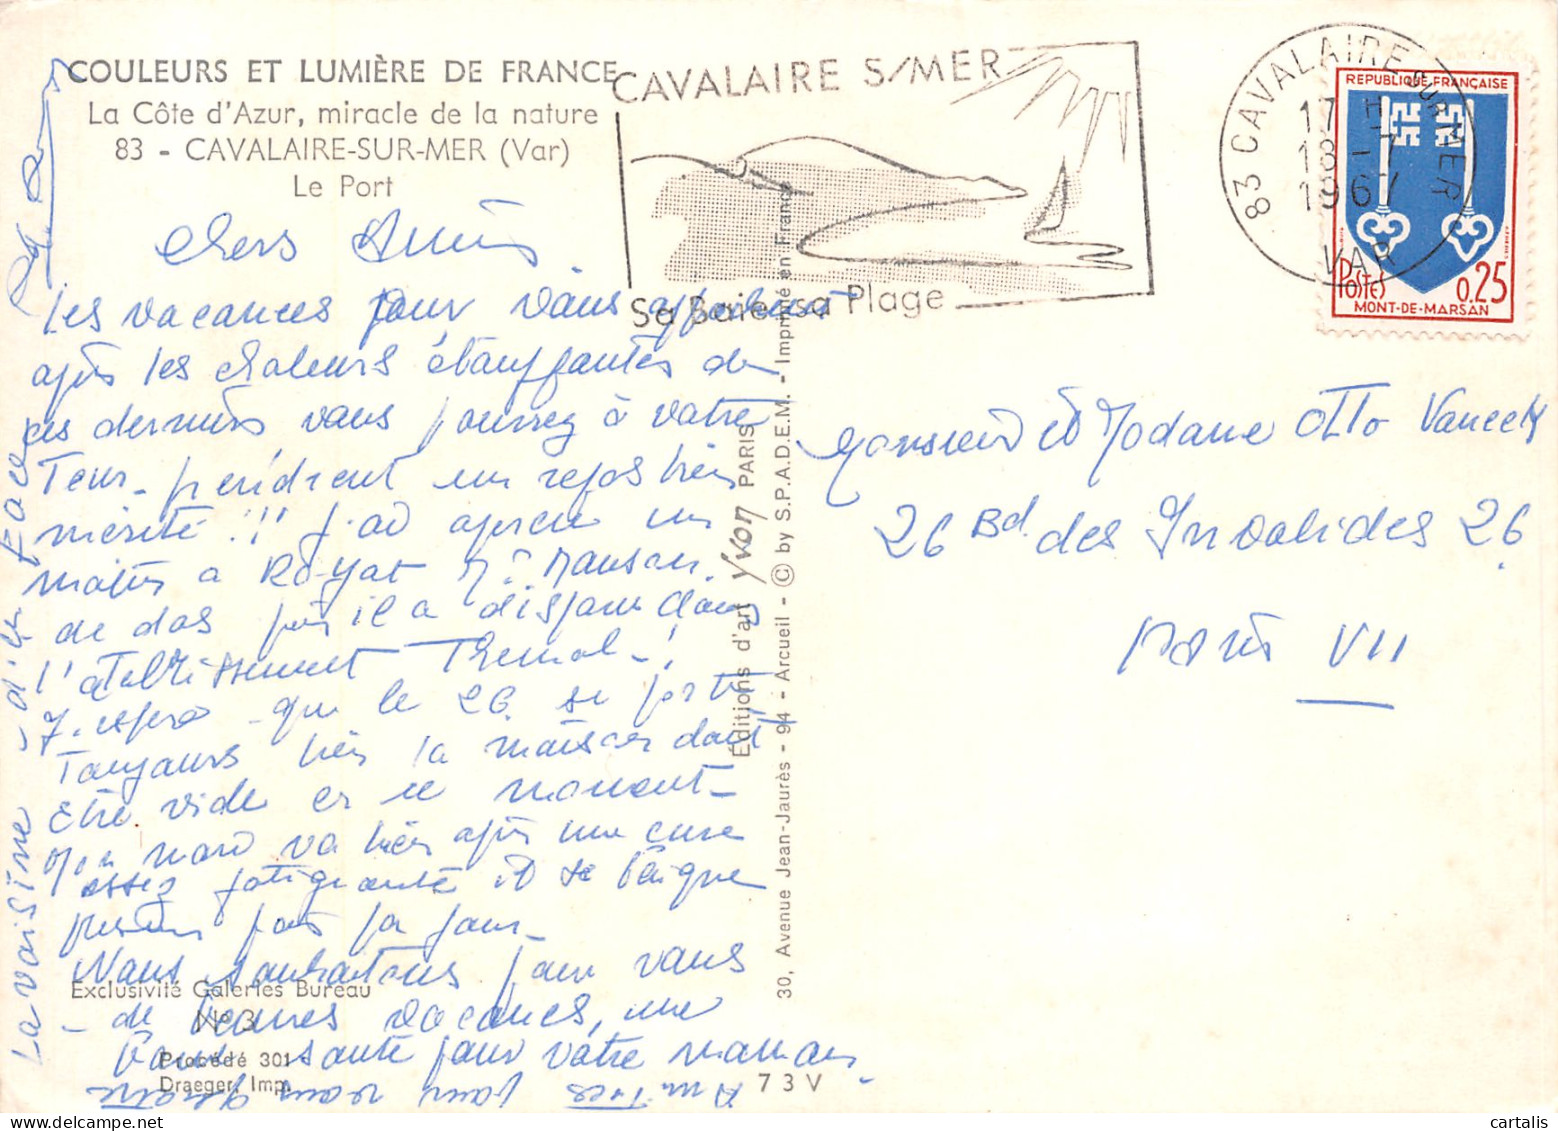 COULEURS ET LUMIÈRE DE FRANCE
La Côte d'Azur, miracle de la nature
83 - CAVALAIRE-SUR-MER (Var)
Le Port
CAVALAIRE S/MER
Sa Baie sa Plage
83 CAVALAIRE SUR MER
17 H
18 - 7
1967
VAR
REPUBLIQUE FRANÇAISE
Postes
0.25
MONT-DE-MARSAN
Chers Amis.
Les vacances pour vous approchent
après les chaleurs étouffantes de
ces derniers vous pourrez à votre
Tour prendre un repos bien
mérité !! J'ai aperçu un
matin à Royat Mr
de dos puis il a disparu dans
l'établissement Thermal !
J'espère que le 26 se porte
Toujours bien la maison doit
Être vide en ce moment
Mon mari va bien après une cure
assez fatigante il se baigne
plusieurs fois par jour
Nous souhaitons pour vous
de bonnes vacances, une
bonne santé pour votre maman.
Amitiés pour vous
La voisine d'en Face
Monsieur et Madame Otto
26 Bd des Invalides 26
Paris VII
Éditions d'art Yvon PARIS
30, Avenue Jean-Jaurès - 94 - Arcueil - © by S.P.A.D.E.M. - Imprimé en France
Exclusivité Galeries Bureau
N° 3
Procédé 301
Draeger, Imp.
7 3 V
cartalis